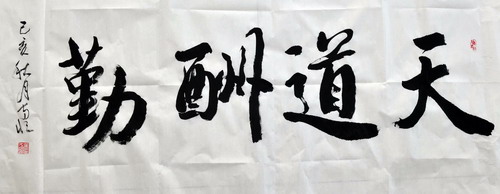 天道酬勤
己亥秋月